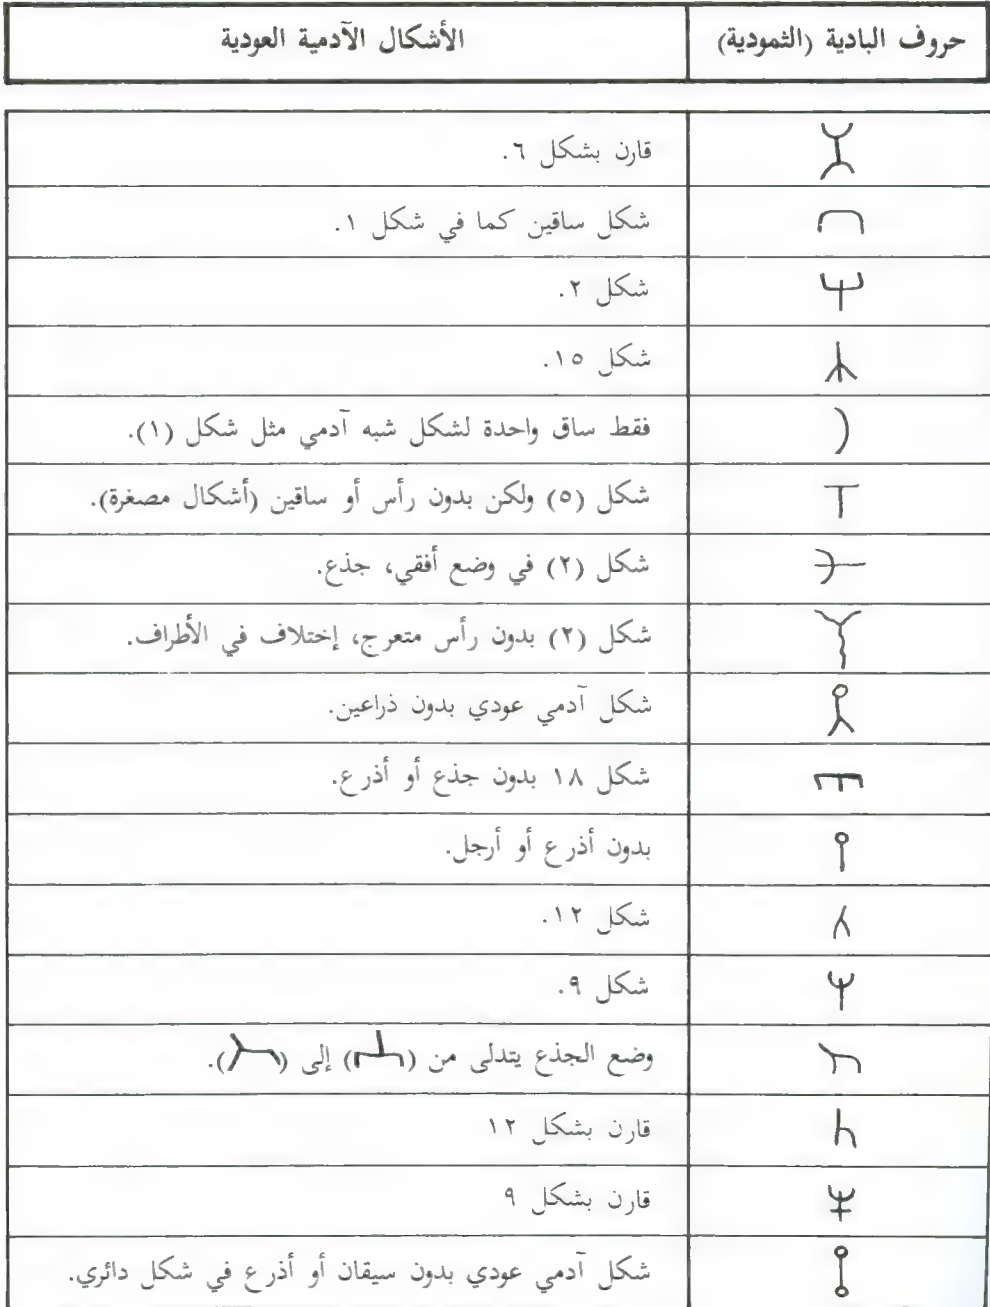 حروف البادية (الثمودية) الأشكال الآدمية العودية
قارن بشكل ٦.
شكل ساقين كما في شكل ١.
شكل ٢.
شكل ١٥.
فقط ساق واحدة لشكل شبه آدمي مثل شكل (١).
شكل (٥) ولكن بدون رأس أو ساقين (أشكال مصغرة).
شكل (٢) في وضع أفقي، جذع.
شكل (٢) بدون رأس متعرج، إختلاف في الأطراف.
شكل آدمي عودي بدون ذراعين.
شكل ١٨ بدون جذع أو أذرع.
بدون أذرع أو أرجل.
شكل ١٢.
شكل ٩.
وضع الجذع يتدلى من () إلى ().
قارن بشكل ١٢
قارن بشكل ٩
شكل آدمي عودي بدون سيقان أو أذرع في شكل دائري.